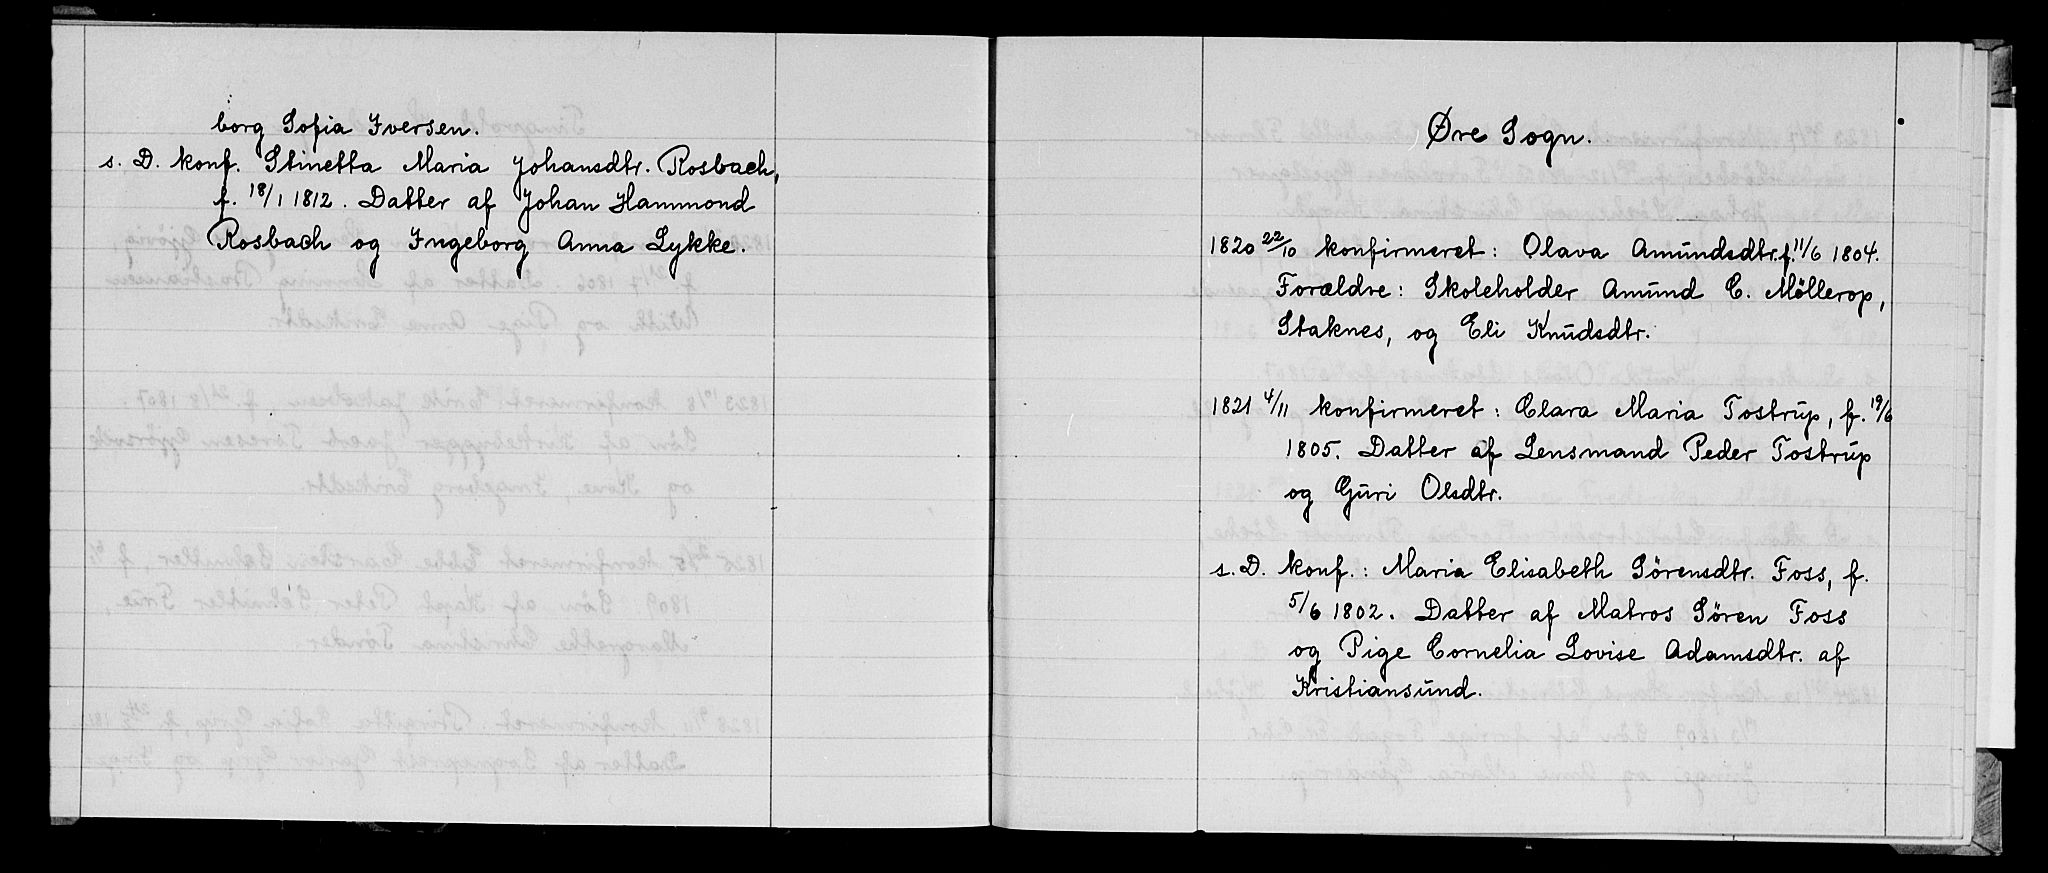 borg Sofia Iversen.
s. D. konf. Stinetta Maria Johansdtr. Rosbach,
f. 18/1 1812. Datter af Johan Hammond
Rosbach og Ingeborg Anna Lykke.
Øre Sogn.
1820 22/10 konfirmeret: Olava Amundsdtr. f. 11/6 1804.
Forældre: Skoleholder Amund C. Möllerop,
Staknes, og Eli Knudsdtr.
1821 4/11 konfirmeret: Clara Maria Tostrup, f. 19/6
1805. Datter af Lensmand Peder Tostrup
og Guri Olsdtr.
s. D. konf.: Maria Elisabeth Sörensdtr. Foss, f.
5/6 1802. Datter af Matros Sören Foss
og Pige Cornelia Lovise Adamsdtr. af
Kristiansund.